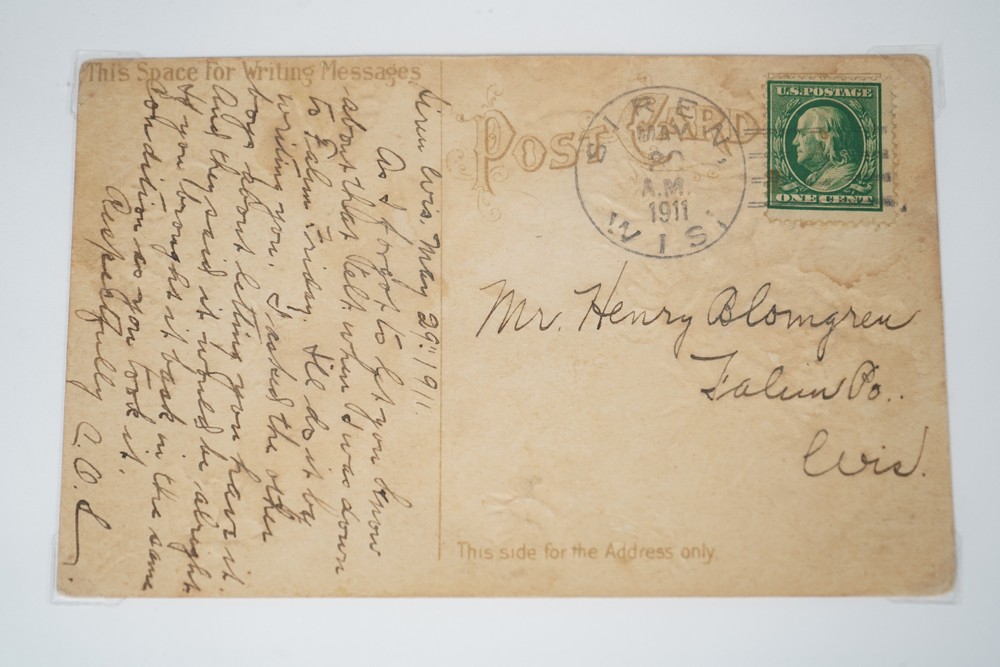 This Space for Writing Messages
Siren Wis. May 29. 1911.
As I forgot to let you know
about that Telt when I was down
to Falun Friday. Ill do it by
writing you. I asked the other
boys about letting you have it.
And they said it would be alright
if you brought it back in the same
condition as you took it.
Respectfully C.O.L.
POST CARD
SIREN,
MAY
A.M.
1911
WIS.
U.S.POSTAGE
ONE CENT
Mr. Henry Blomgren
Falun Po..
Wis.
This side for the Address only.